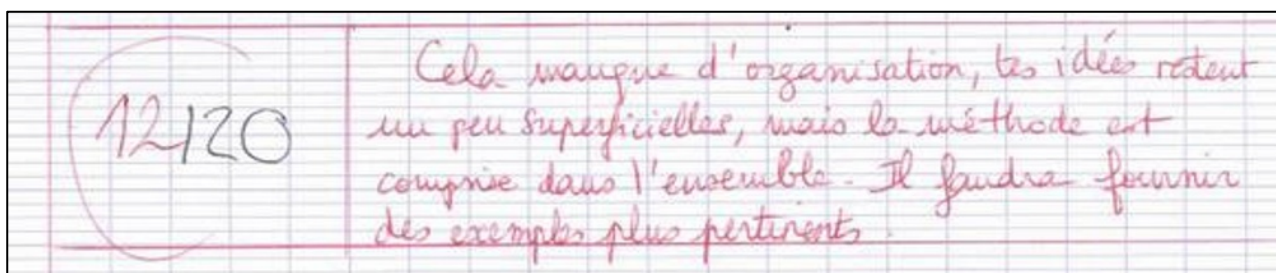 12/20
Cela manque d'organisation, tes idées restent
un peu superficielles, mais la méthode est
comprise dans l'ensemble. Il faudra fournir
des exemples plus pertinents.